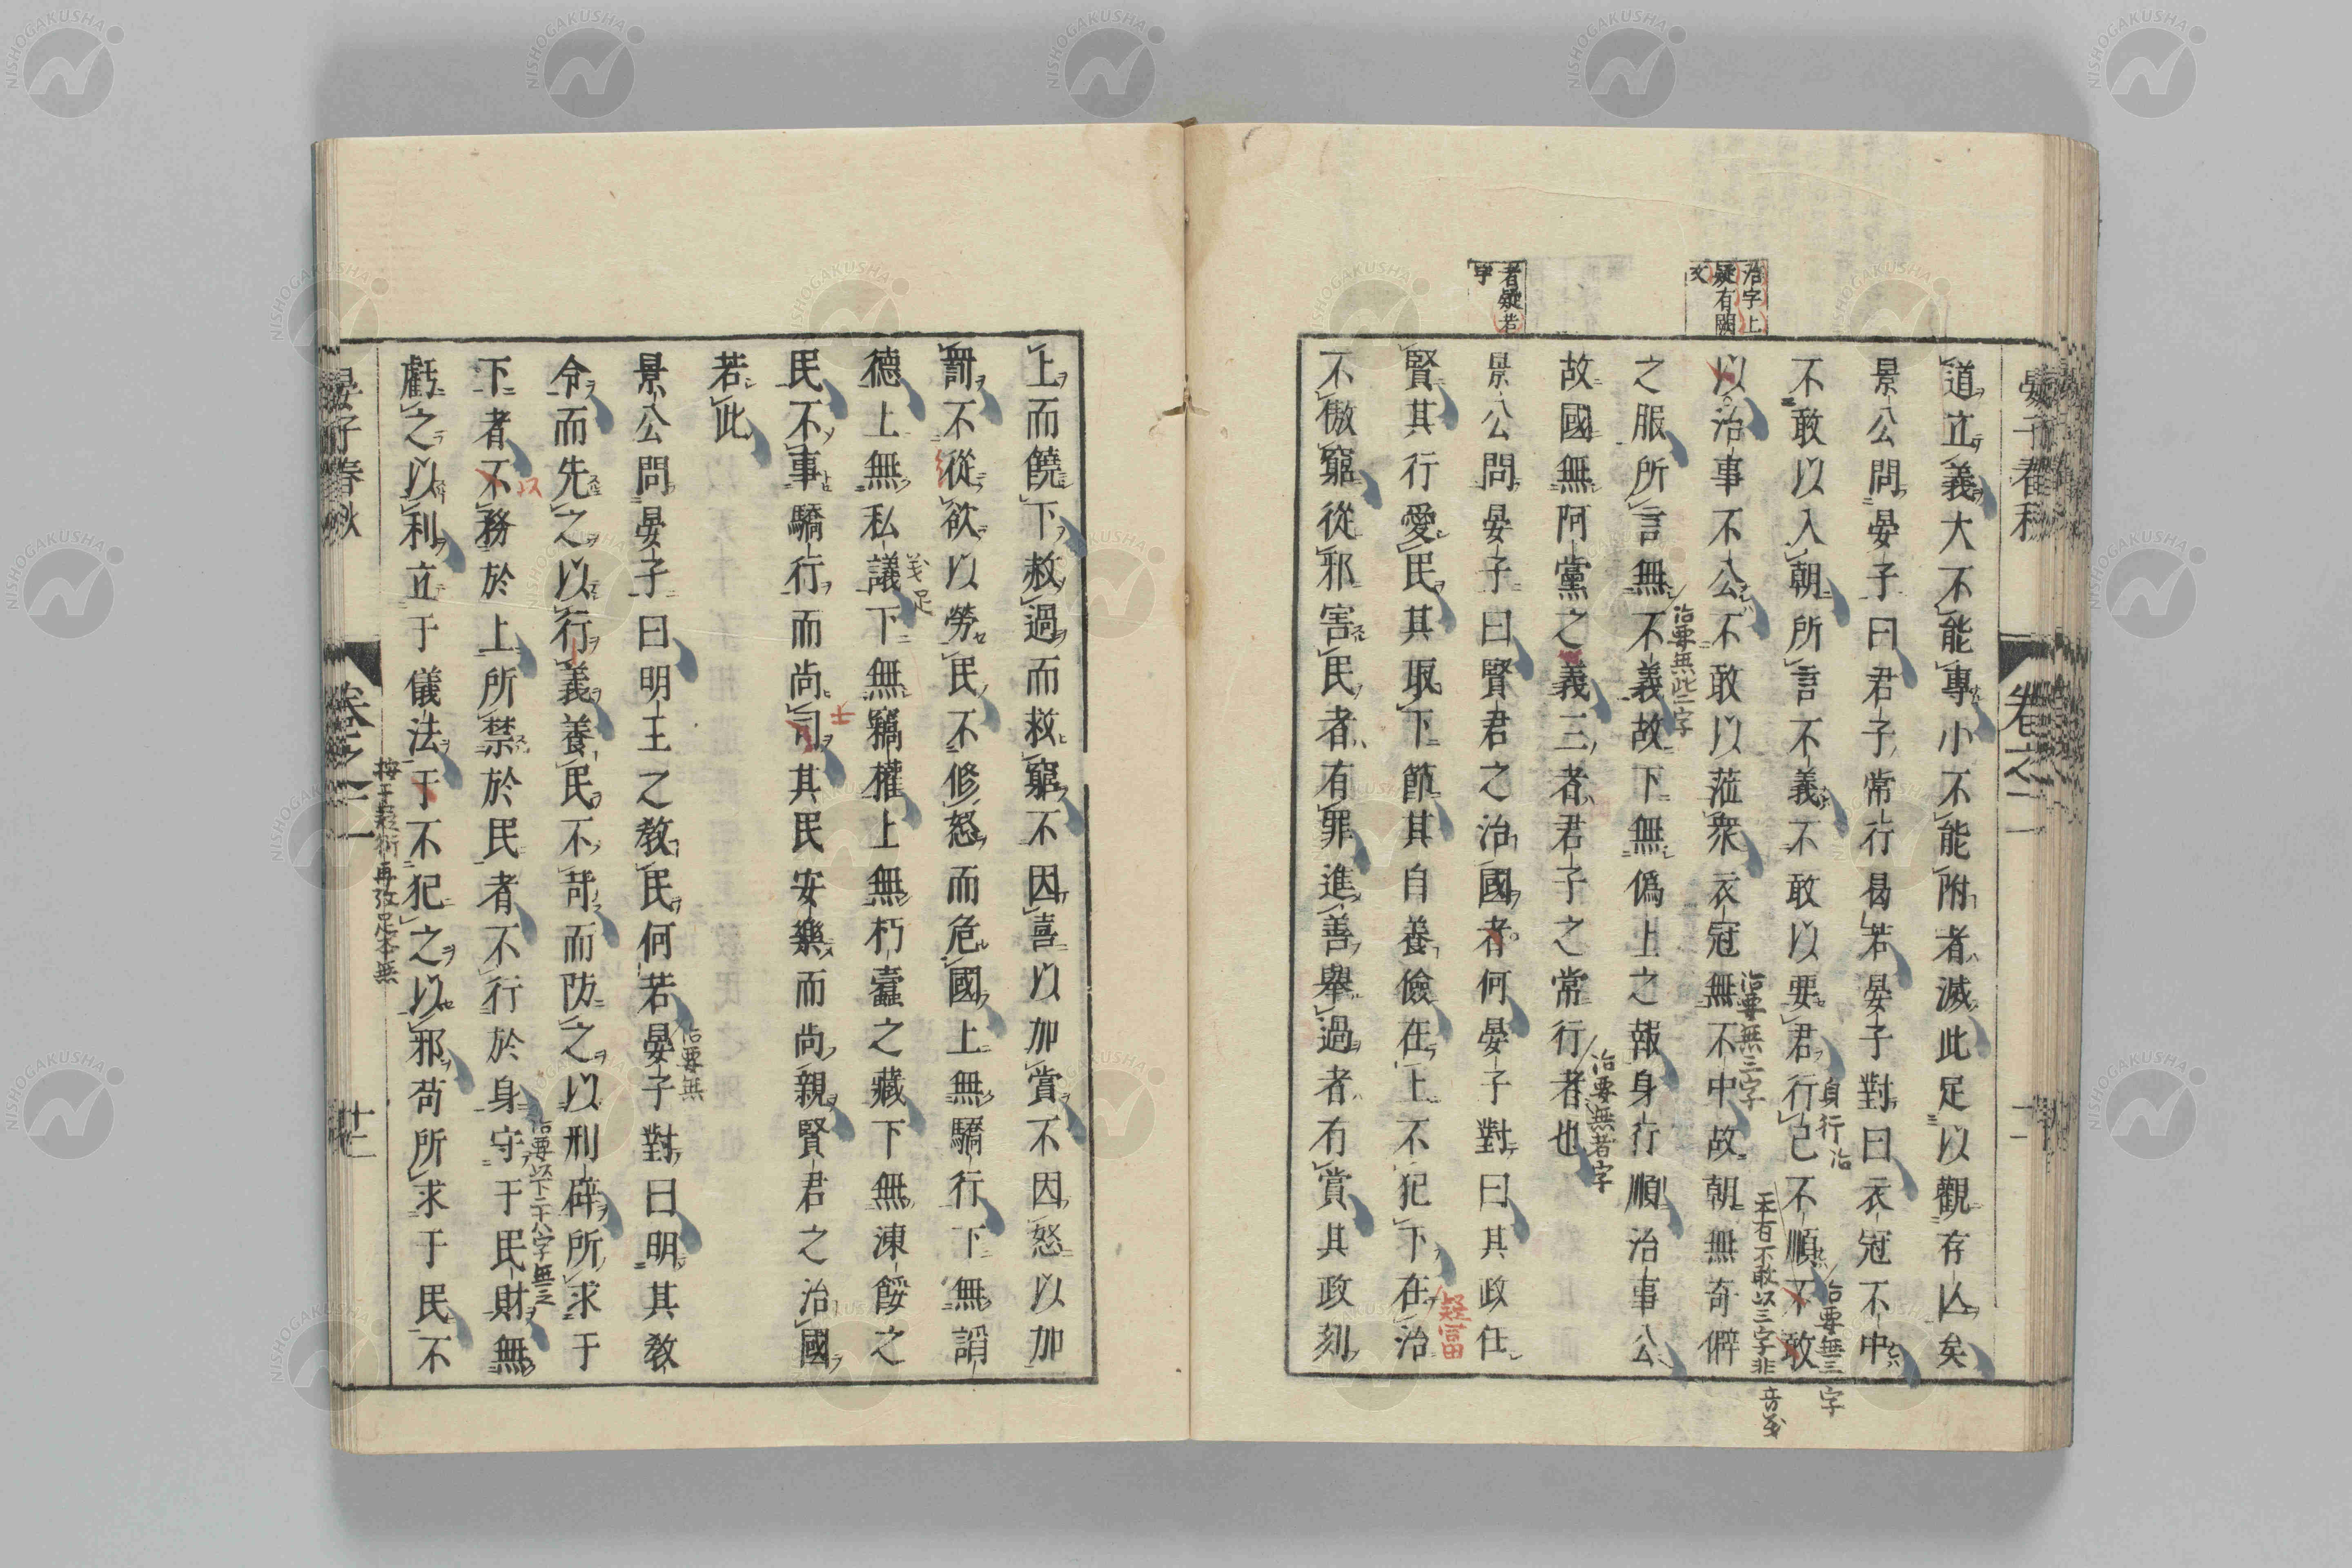 晏子春秋
卷之二
治字上
疑有闕
文
者疑若
字
道立義大不能專小不能附者滅此足以觀存亾矣
景公問晏子曰君子常行曷若晏子對曰衣冠不中
不敢以入朝所言不義不敢以要君行己不順不敢
身行治
治要無三字
以治事不公不敢以蒞衆衣冠無不中故朝無奇僻
治要無三字
之服所言無不義故下無僞上之報身行順治事公
治要無此二字
故國無阿黨之義三者君子之常行者也
治要無者字
景公問晏子曰賢君之治國者何晏子對曰其政任
賢其行愛民其取下節其自養儉在上不犯下在治
疑富
不傲窮從邪害民者有罪進善舉過者有賞其政刻
上而饒下赦過而救窮不因喜以加賞不因怒以加
罰不從欲以勞民不修怒而危國上無驕行下無諂
德上無私議下無竊權上無朽蠹之藏下無凍餒之
民不事驕行而尚司其民安樂而尚親賢君之治國
士
若此
景公問晏子曰明王之敎民何若晏子對曰明其敎
治要無
令而先之以行義養民不苛而防之以刑辟所求于
下者不務於上所禁於民者不行於身守于民財無
治要以下二十八字無之
虧之以利立于儀法于不犯之以邪苟所求于民不
晏子春秋
卷之二
十二